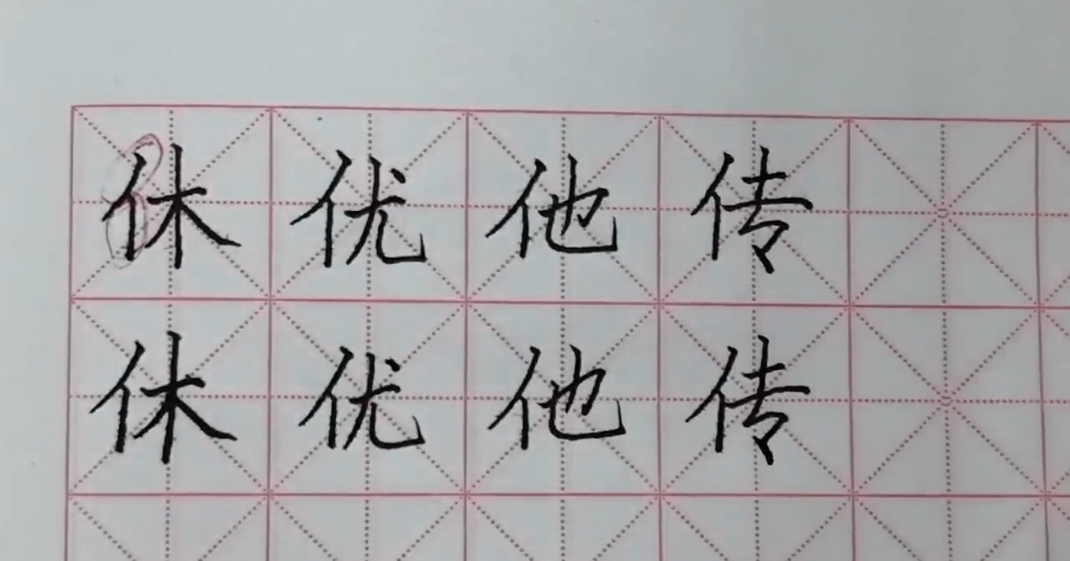 休优他传
休优他传